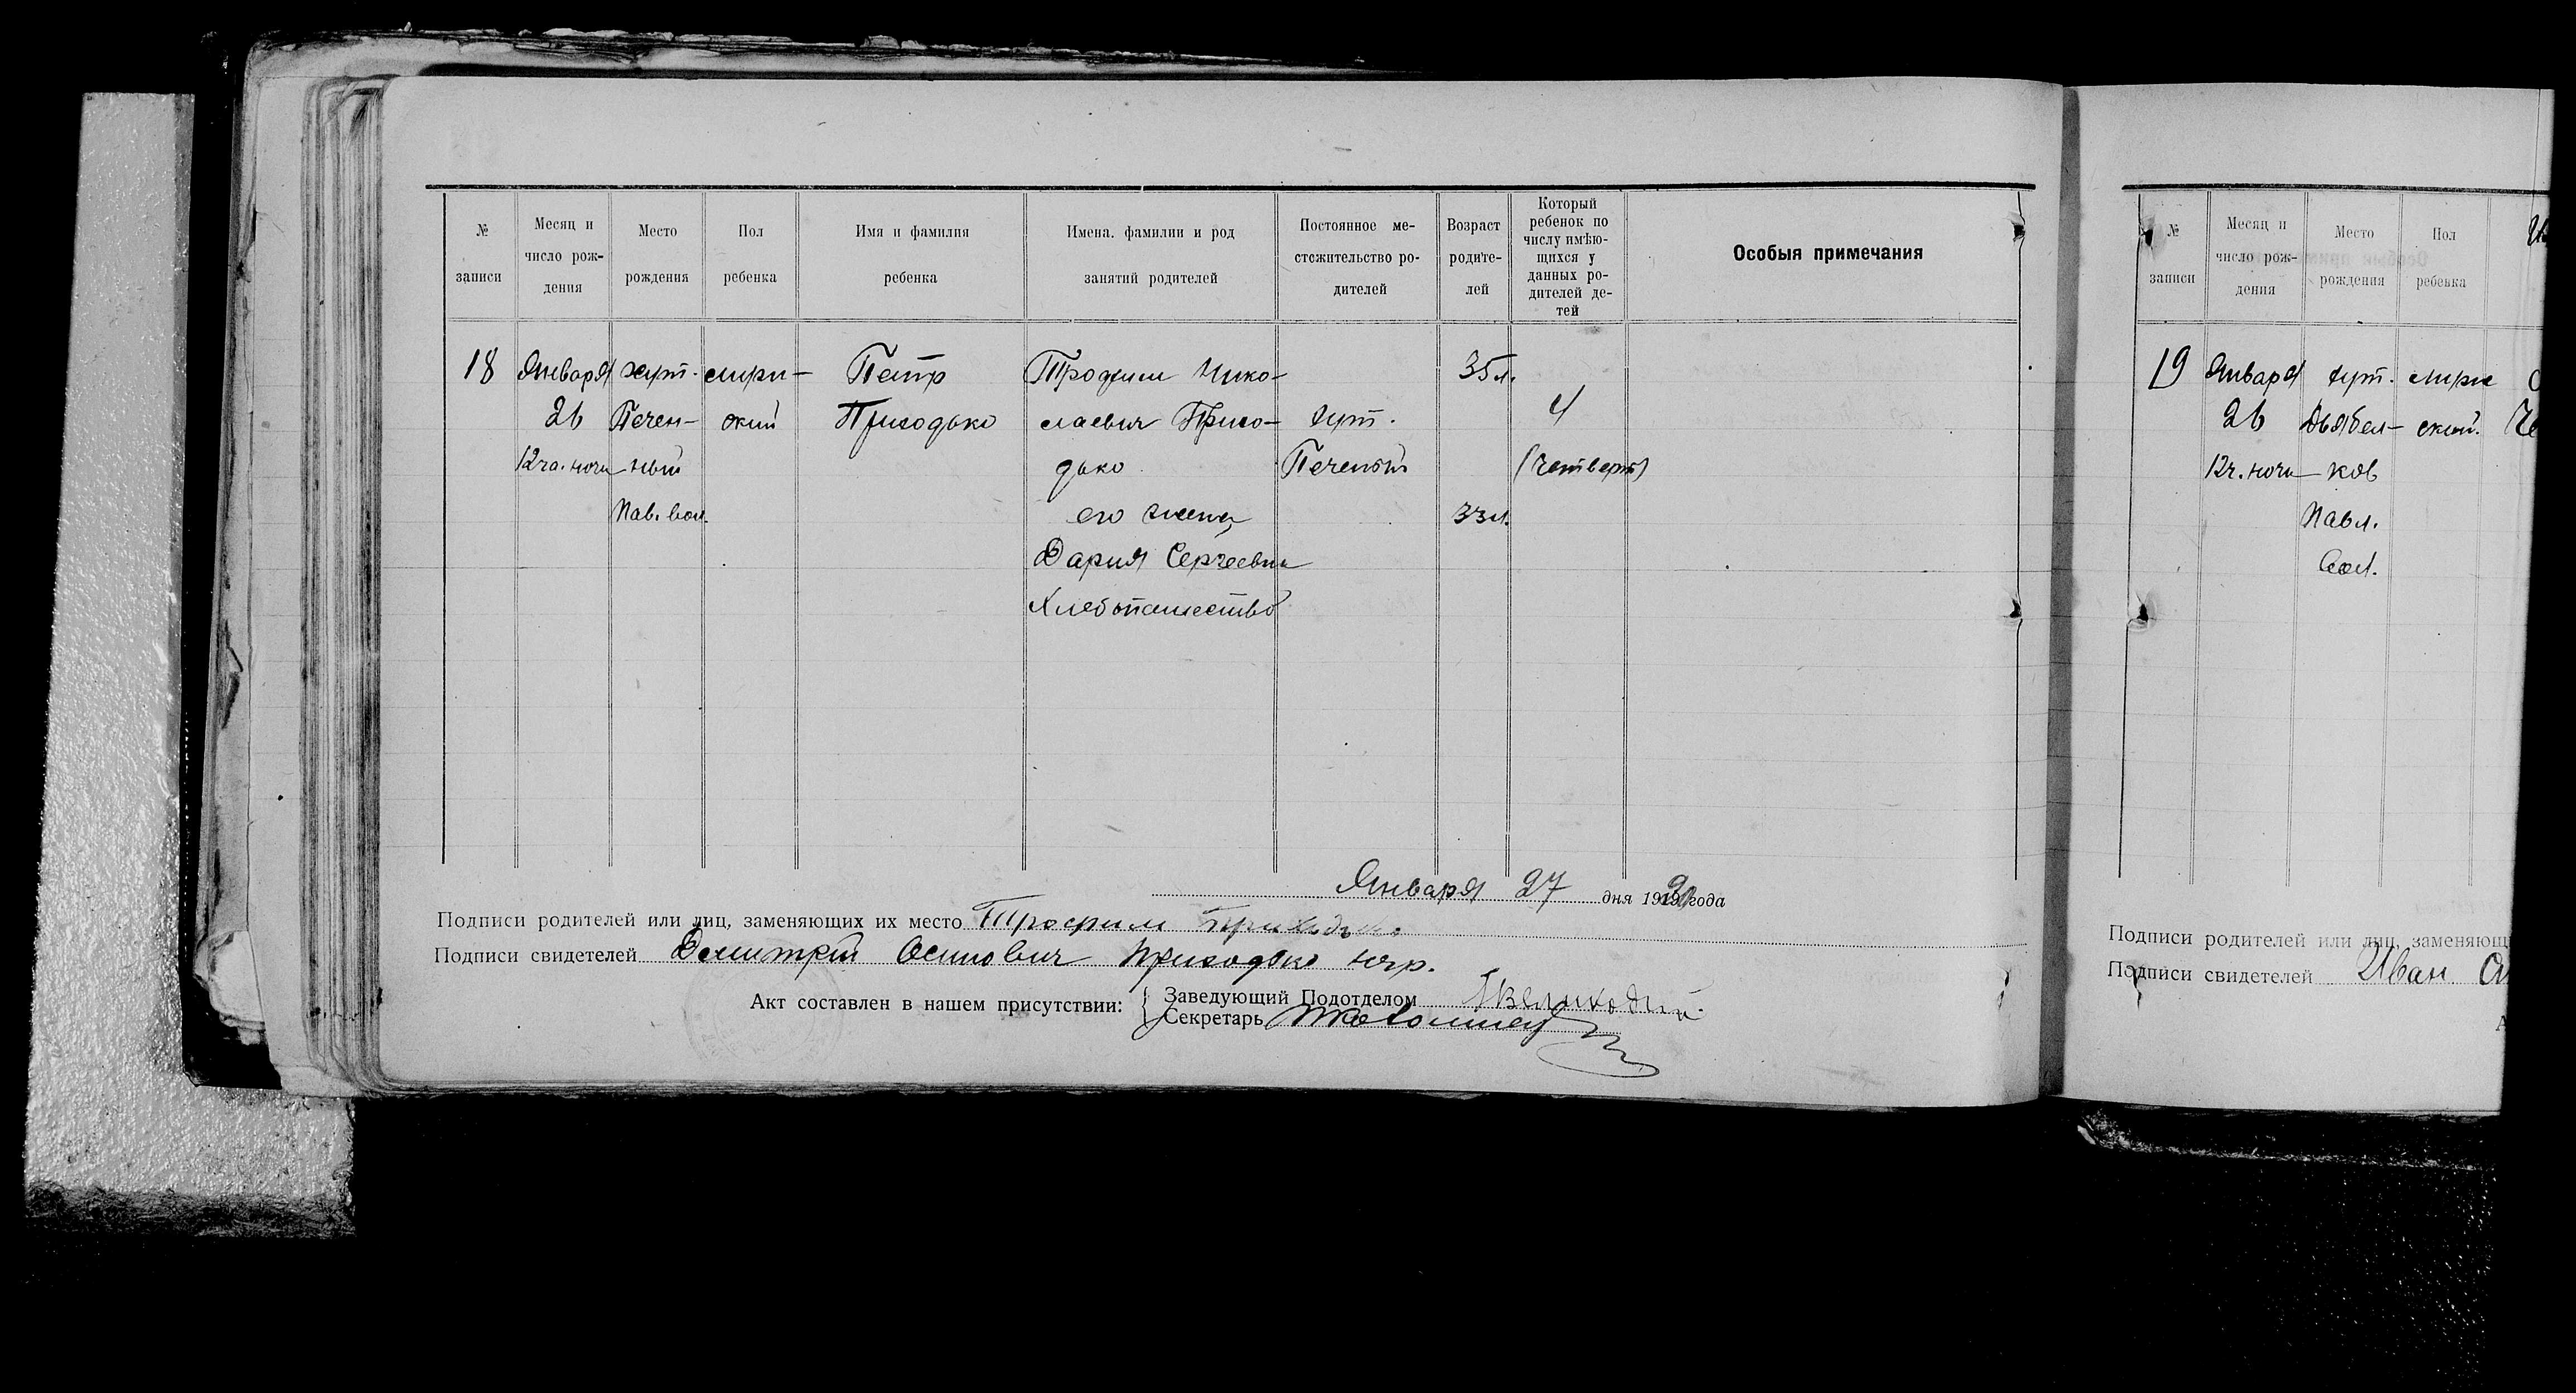 № записи
Месяц и число рождения
Место рождения
Пол ребенка
Имя и фамилия ребенка
Имена. фамилии и род занятий родителей
Постоянное местожительство родителей
Возраст родителей
Который ребенок по числу имѣющихся у данных родителей детей
Особыя примечания
18
Января
26
12 ча. ночи
хут.
Печен-
ный
Пав. вол.
мужс-
ский
Петр
Приходько
Трофим Нико-
лаевич Прихо-
дько
его жена
Дария Сергеевна
Хлебопашество
хут.
Печеный
35 л.
33 л.
4
(четверт)
Января 27 дня 19 года
Подписи родителей или лиц, заменяющих их место Трофим Приходько
Подписи свидетелей Дмитрий Осипович Приходько
Акт составлен в нашем присутствии:
Заведующий Подотделом
Секретарь
№ записи
Месяц и число рождения
Место рождения
Пол ребенка
19
Января
26
12 ч. ночи
хут.
ков
Павл.
вол.
ский.
Подписи родителей или лиц, заменяющ
Подписи свидетелей Иван